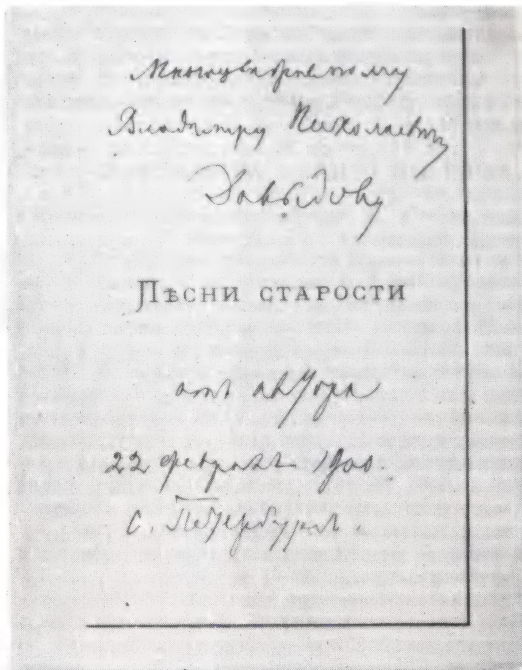 Многоуважаемому
Владимиру Николаевичу
Давыдову
Пѣсни старости
отъ автора
22 февраля 1900.
С. Петербургъ.